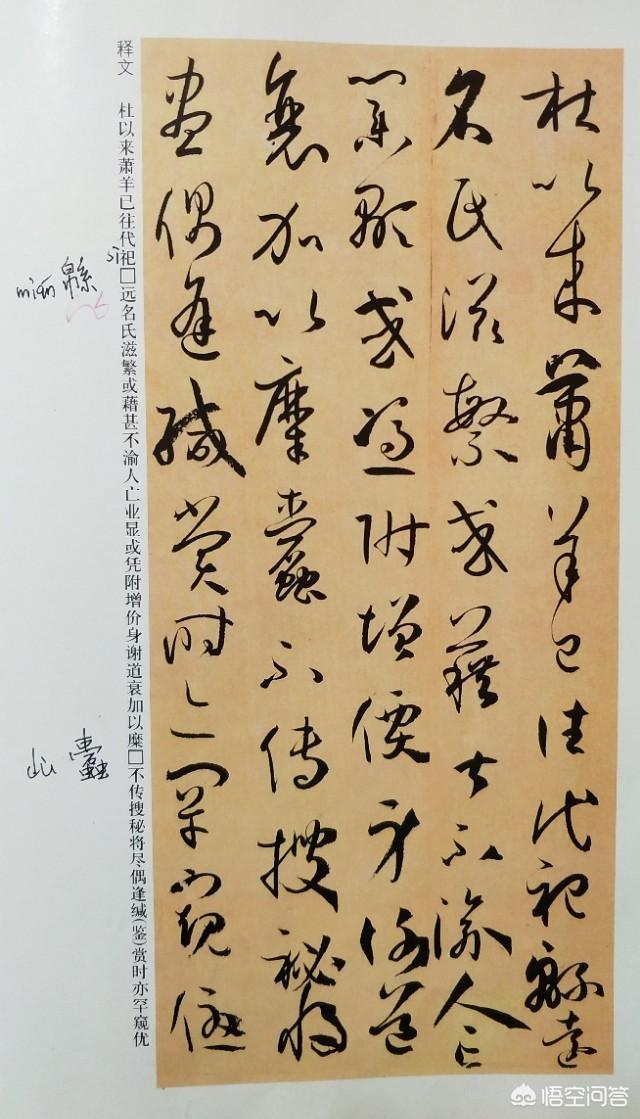 杜以來蕭羊已往代祀緜遠
名氏滋繁或藉甚不渝人亡
業顯或憑附增價身謝道
衰加以糜蠹不傳搜秘將
盡偶逢緘賞時亦罕窺優
释文 杜以来萧羊已往代祀□远名氏滋繁或藉甚不渝人亡业显或凭附增价身谢道衰加以糜□不传搜秘将尽偶逢缄(鉴)赏时亦罕窥优
sì
mián 緜
蠹
悟空问答